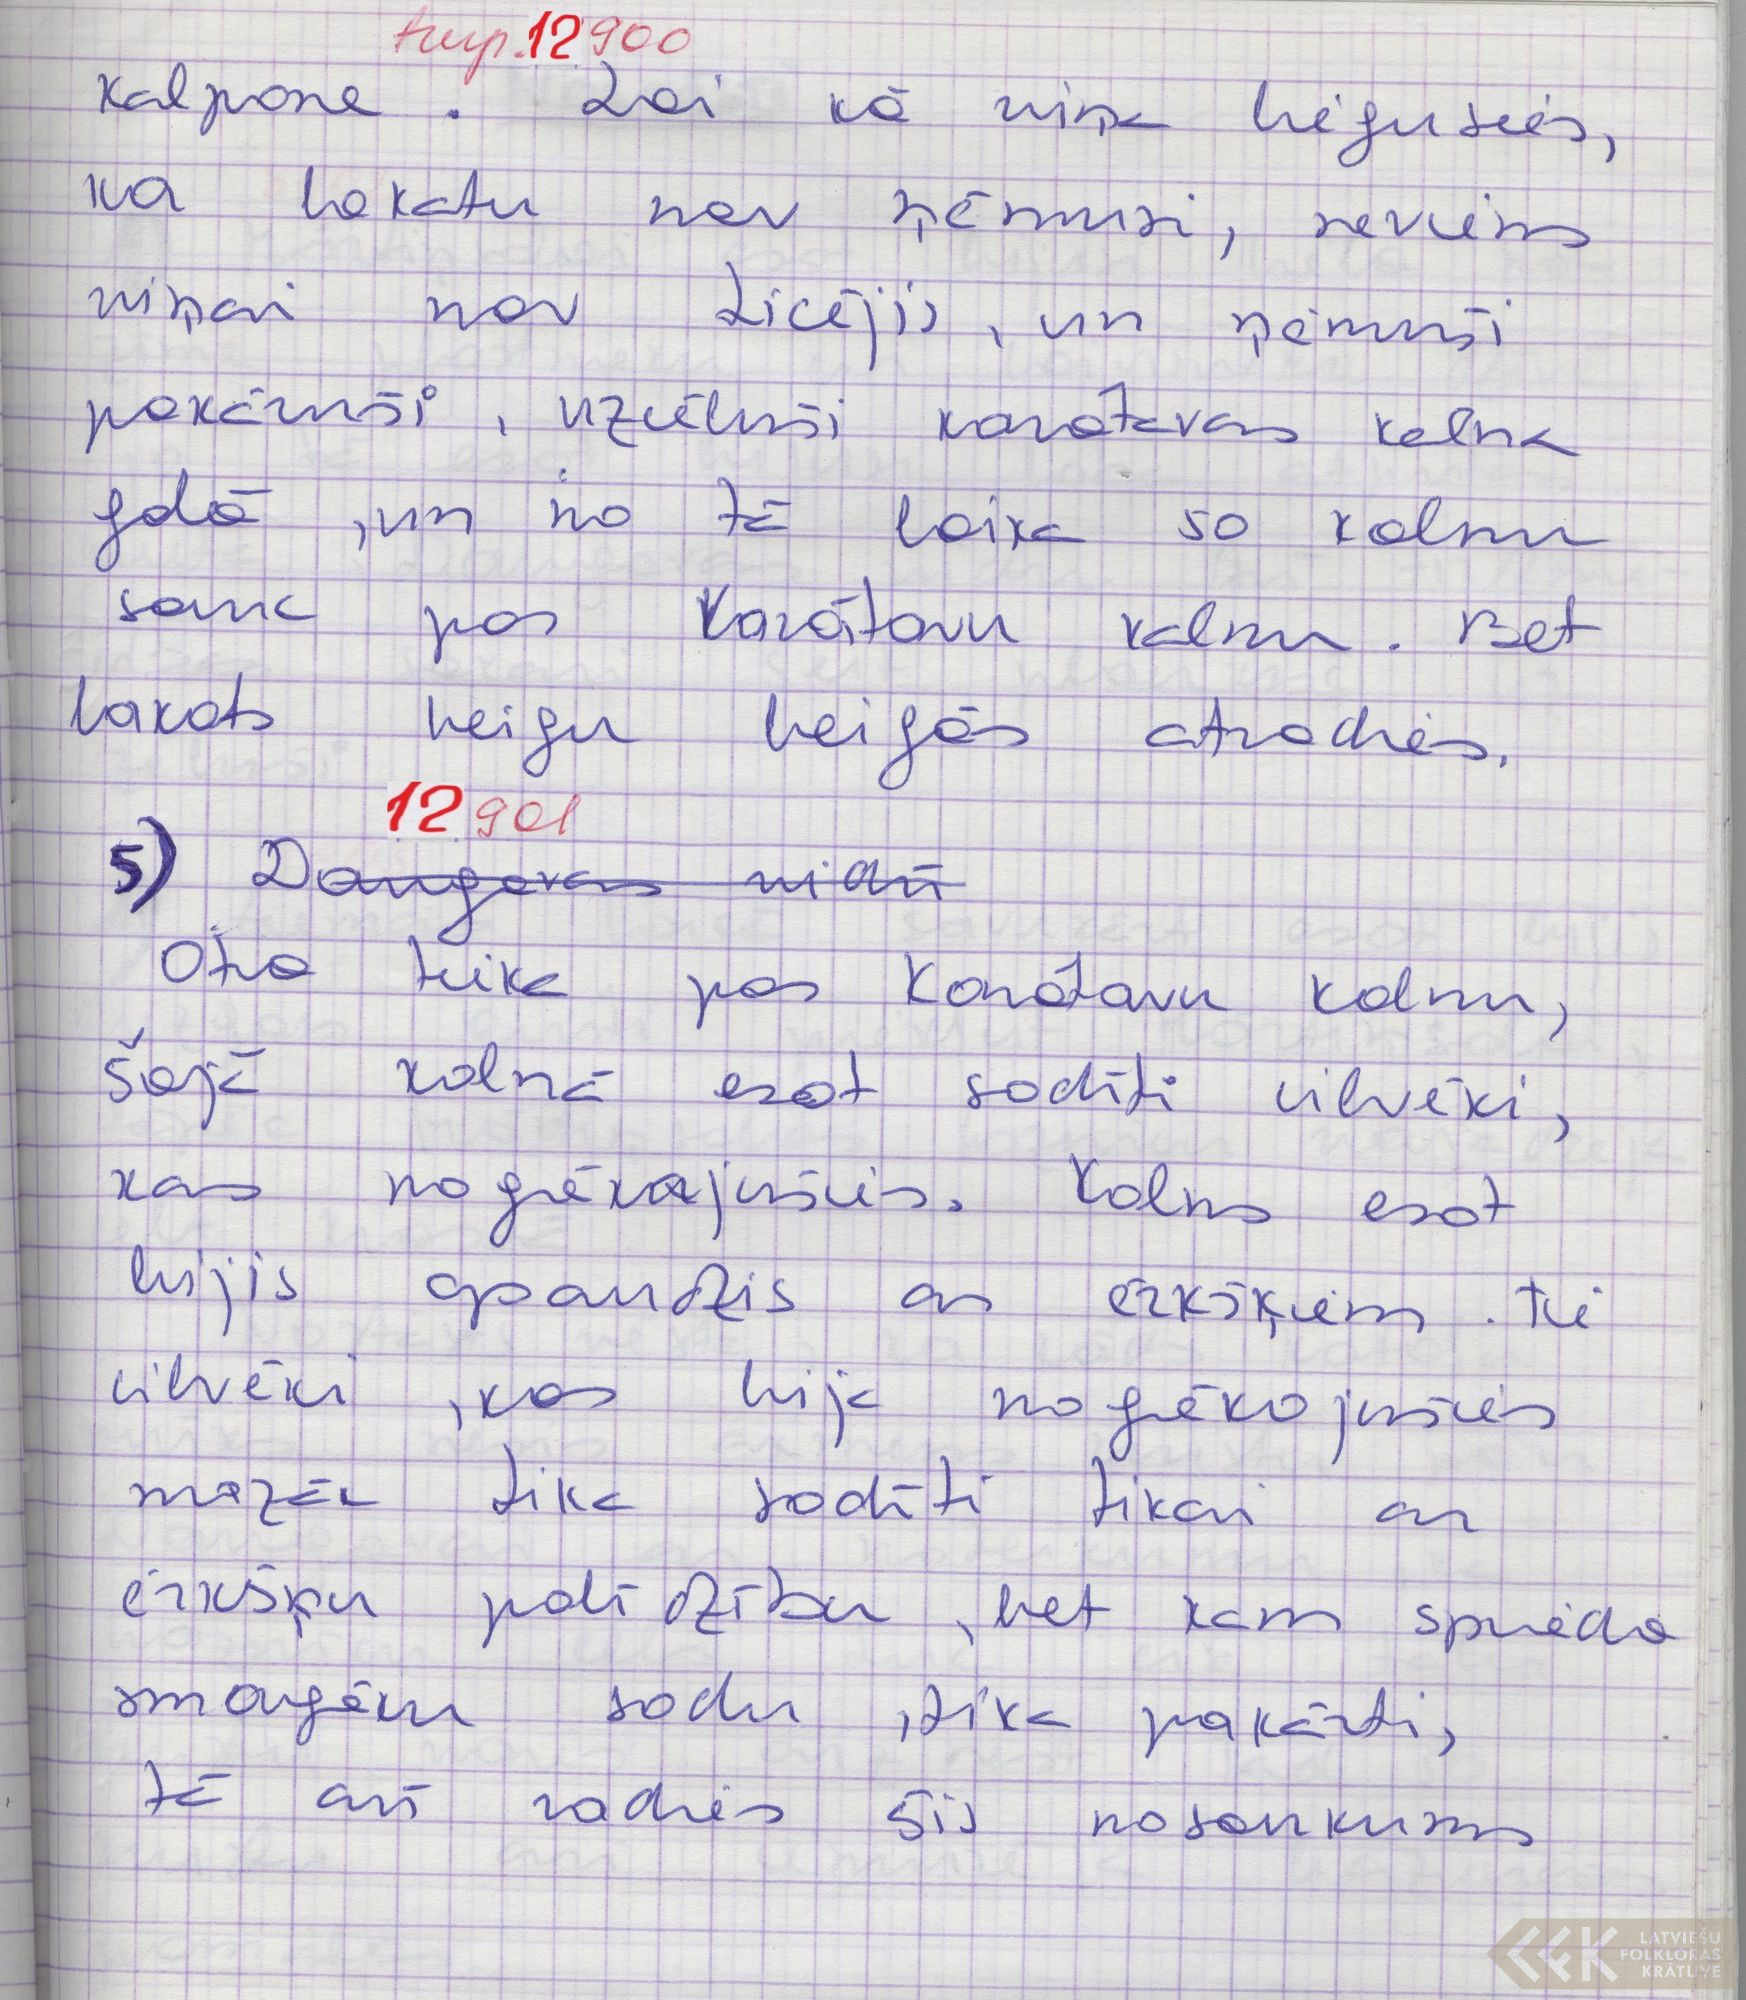 turp. 12900
kalpone. Lai kā viņa liegusies,
ka lakatu nav ņēmusi, neviens
viņai nav ticējis, un ņēmuši
pakāruši, uzcēluši karātavas kalna
galā, un no tā laika so kalnu
sauc par Karātavu kalnu. Bet
lakats beigu beigās atradies.
12901
5) Daugavas vidū
Otra teika par Karātavu kalnu,
šajā kalnā esot sodīti cilvēki,
kas nogrēkojušies. Kalns esot
bijis apaudzis ar ērkšķiem. Tie
cilvēki, kas bija nogrēkojušies
mazāk tika sodīti tikai ar
ērkšķu palīdzību, bet kam sprieda
smagāku sodu, tika pakārti,
tā arī radies šis nosaukums
LATVIEŠU
FOLKLORAS
KRĀTUVE